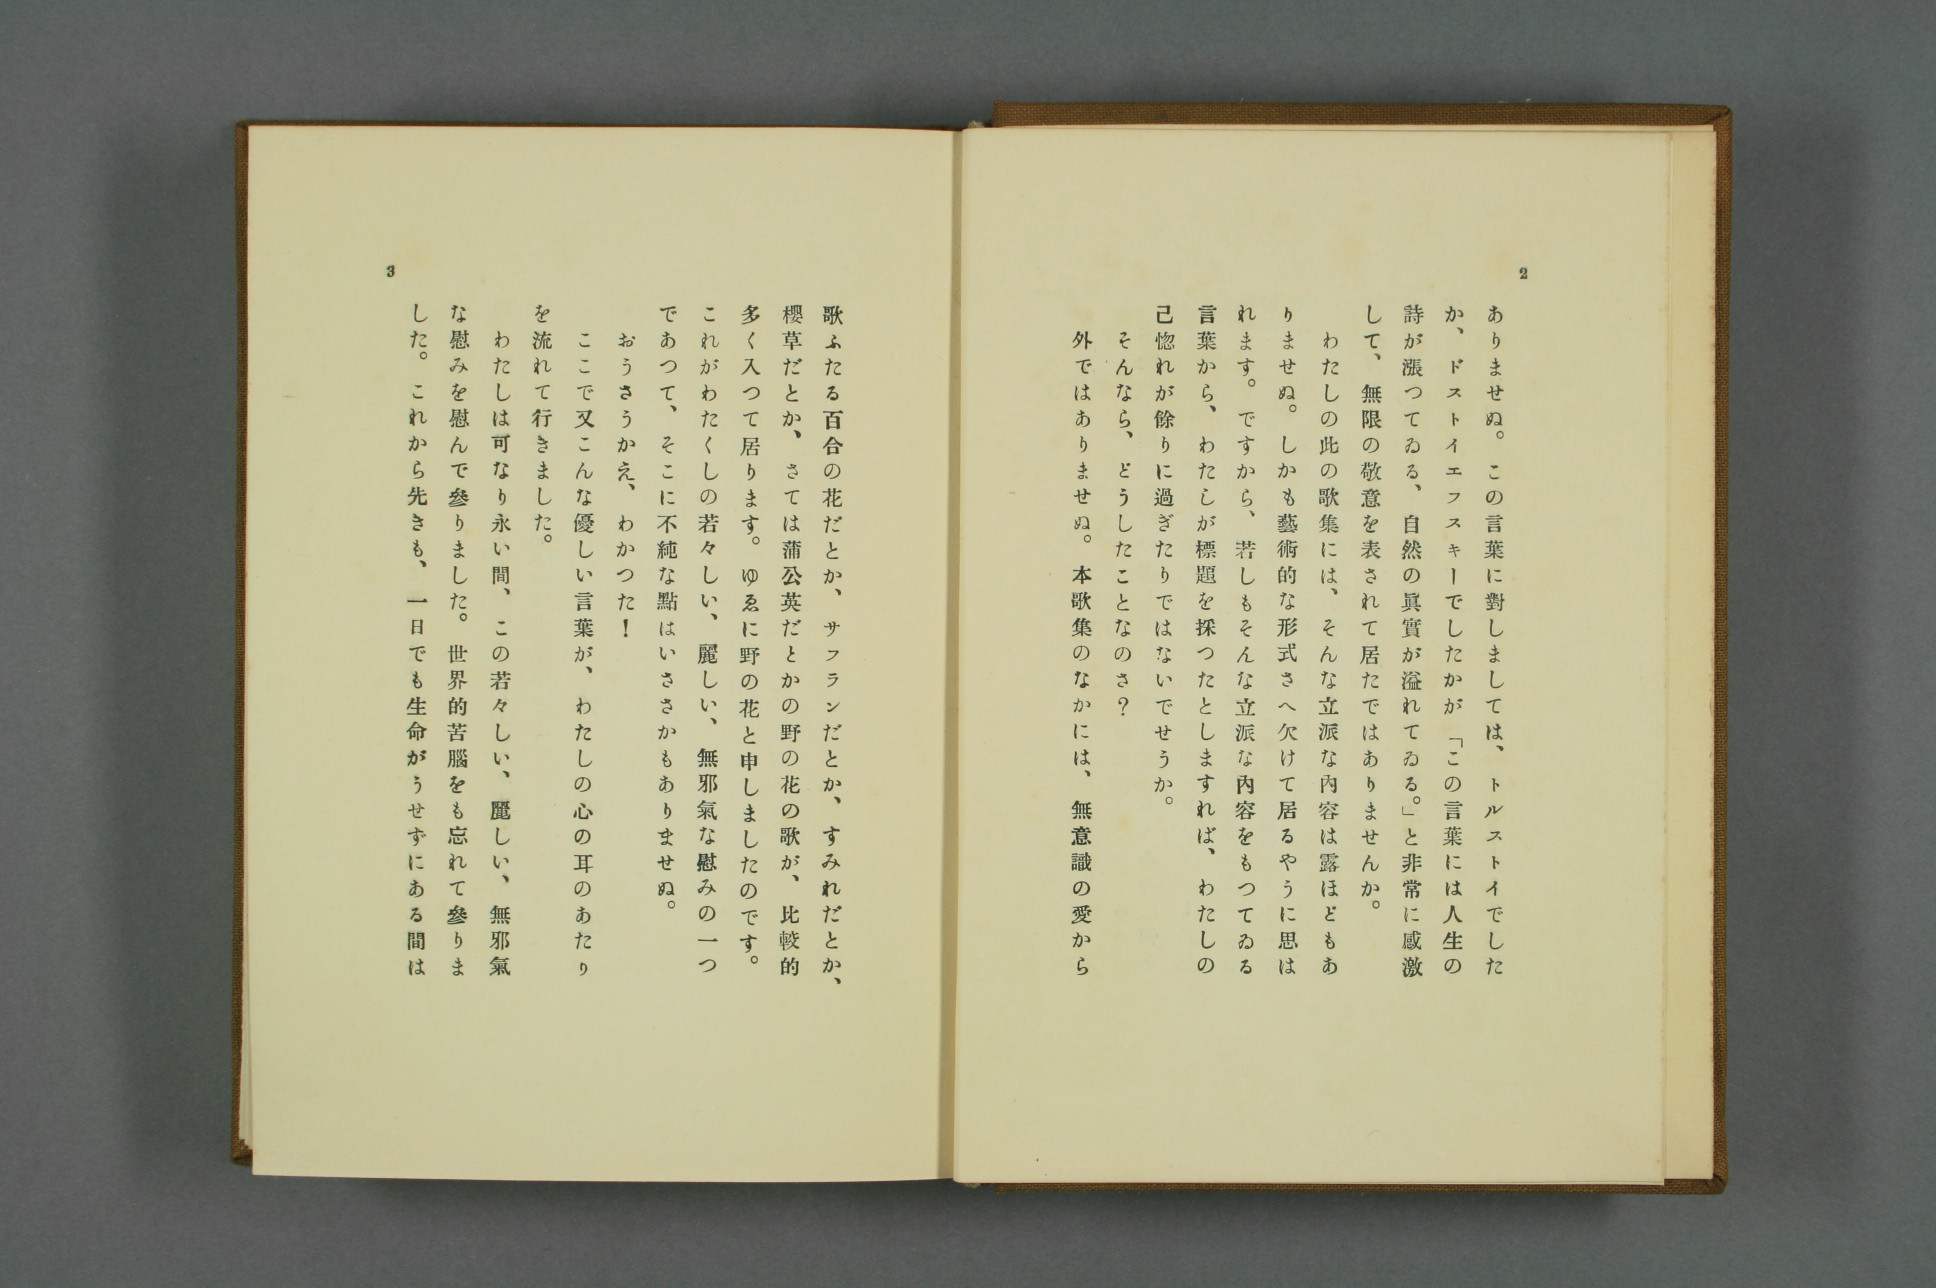 2
ありませぬ。この言葉に對しましては、トルストイでした
か、ドストイエフスキーでしたかが「この言葉には人生の
詩が漲つてゐる、自然の眞實が溢れてゐる。」と非常に感激
して、無限の敬意を表されて居たではありませんか。
わたしの此の歌集には、そんな立派な內容は露ほどもあ
りませぬ。しかも藝術的な形式さへ欠けて居るやうに思は
れます。ですから、若しもそんな立派な內容をもつてゐる
言葉から、わたしが標題を採つたとしますれば、わたしの
己惚れが餘りに過ぎたりではないでせうか。
そんなら、どうしたことなのさ？
外ではありませぬ。本歌集のなかには、無意識の愛から
歌ふたる百合の花だとか、サフランだとか、すみれだとか、
櫻草だとか、さては蒲公英だとかの野の花の歌が、比較的
多く入つて居ります。ゆゑに野の花と申しましたのです。
これがわたくしの若々しい、麗しい、無邪氣な慰みの一つ
であつて、そこに不純な點はいささかもありませぬ。
おうさうかえ、わかつた！
ここで又こんな優しい言葉が、わたしの心の耳のあたり
を流れて行きました。
わたしは可なり永い間、この若々しい、麗しい、無邪氣
な慰みを慰んで參りました。世界的苦腦をも忘れて參りま
した。これから先きも、一日でも生命がうせずにある間は
3